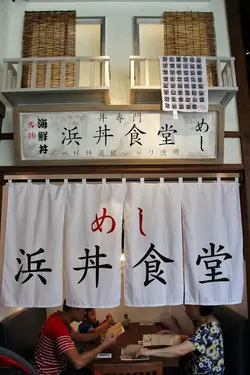 丼専門
名物
海鮮丼
浜丼食堂
めし
めし
浜丼食堂